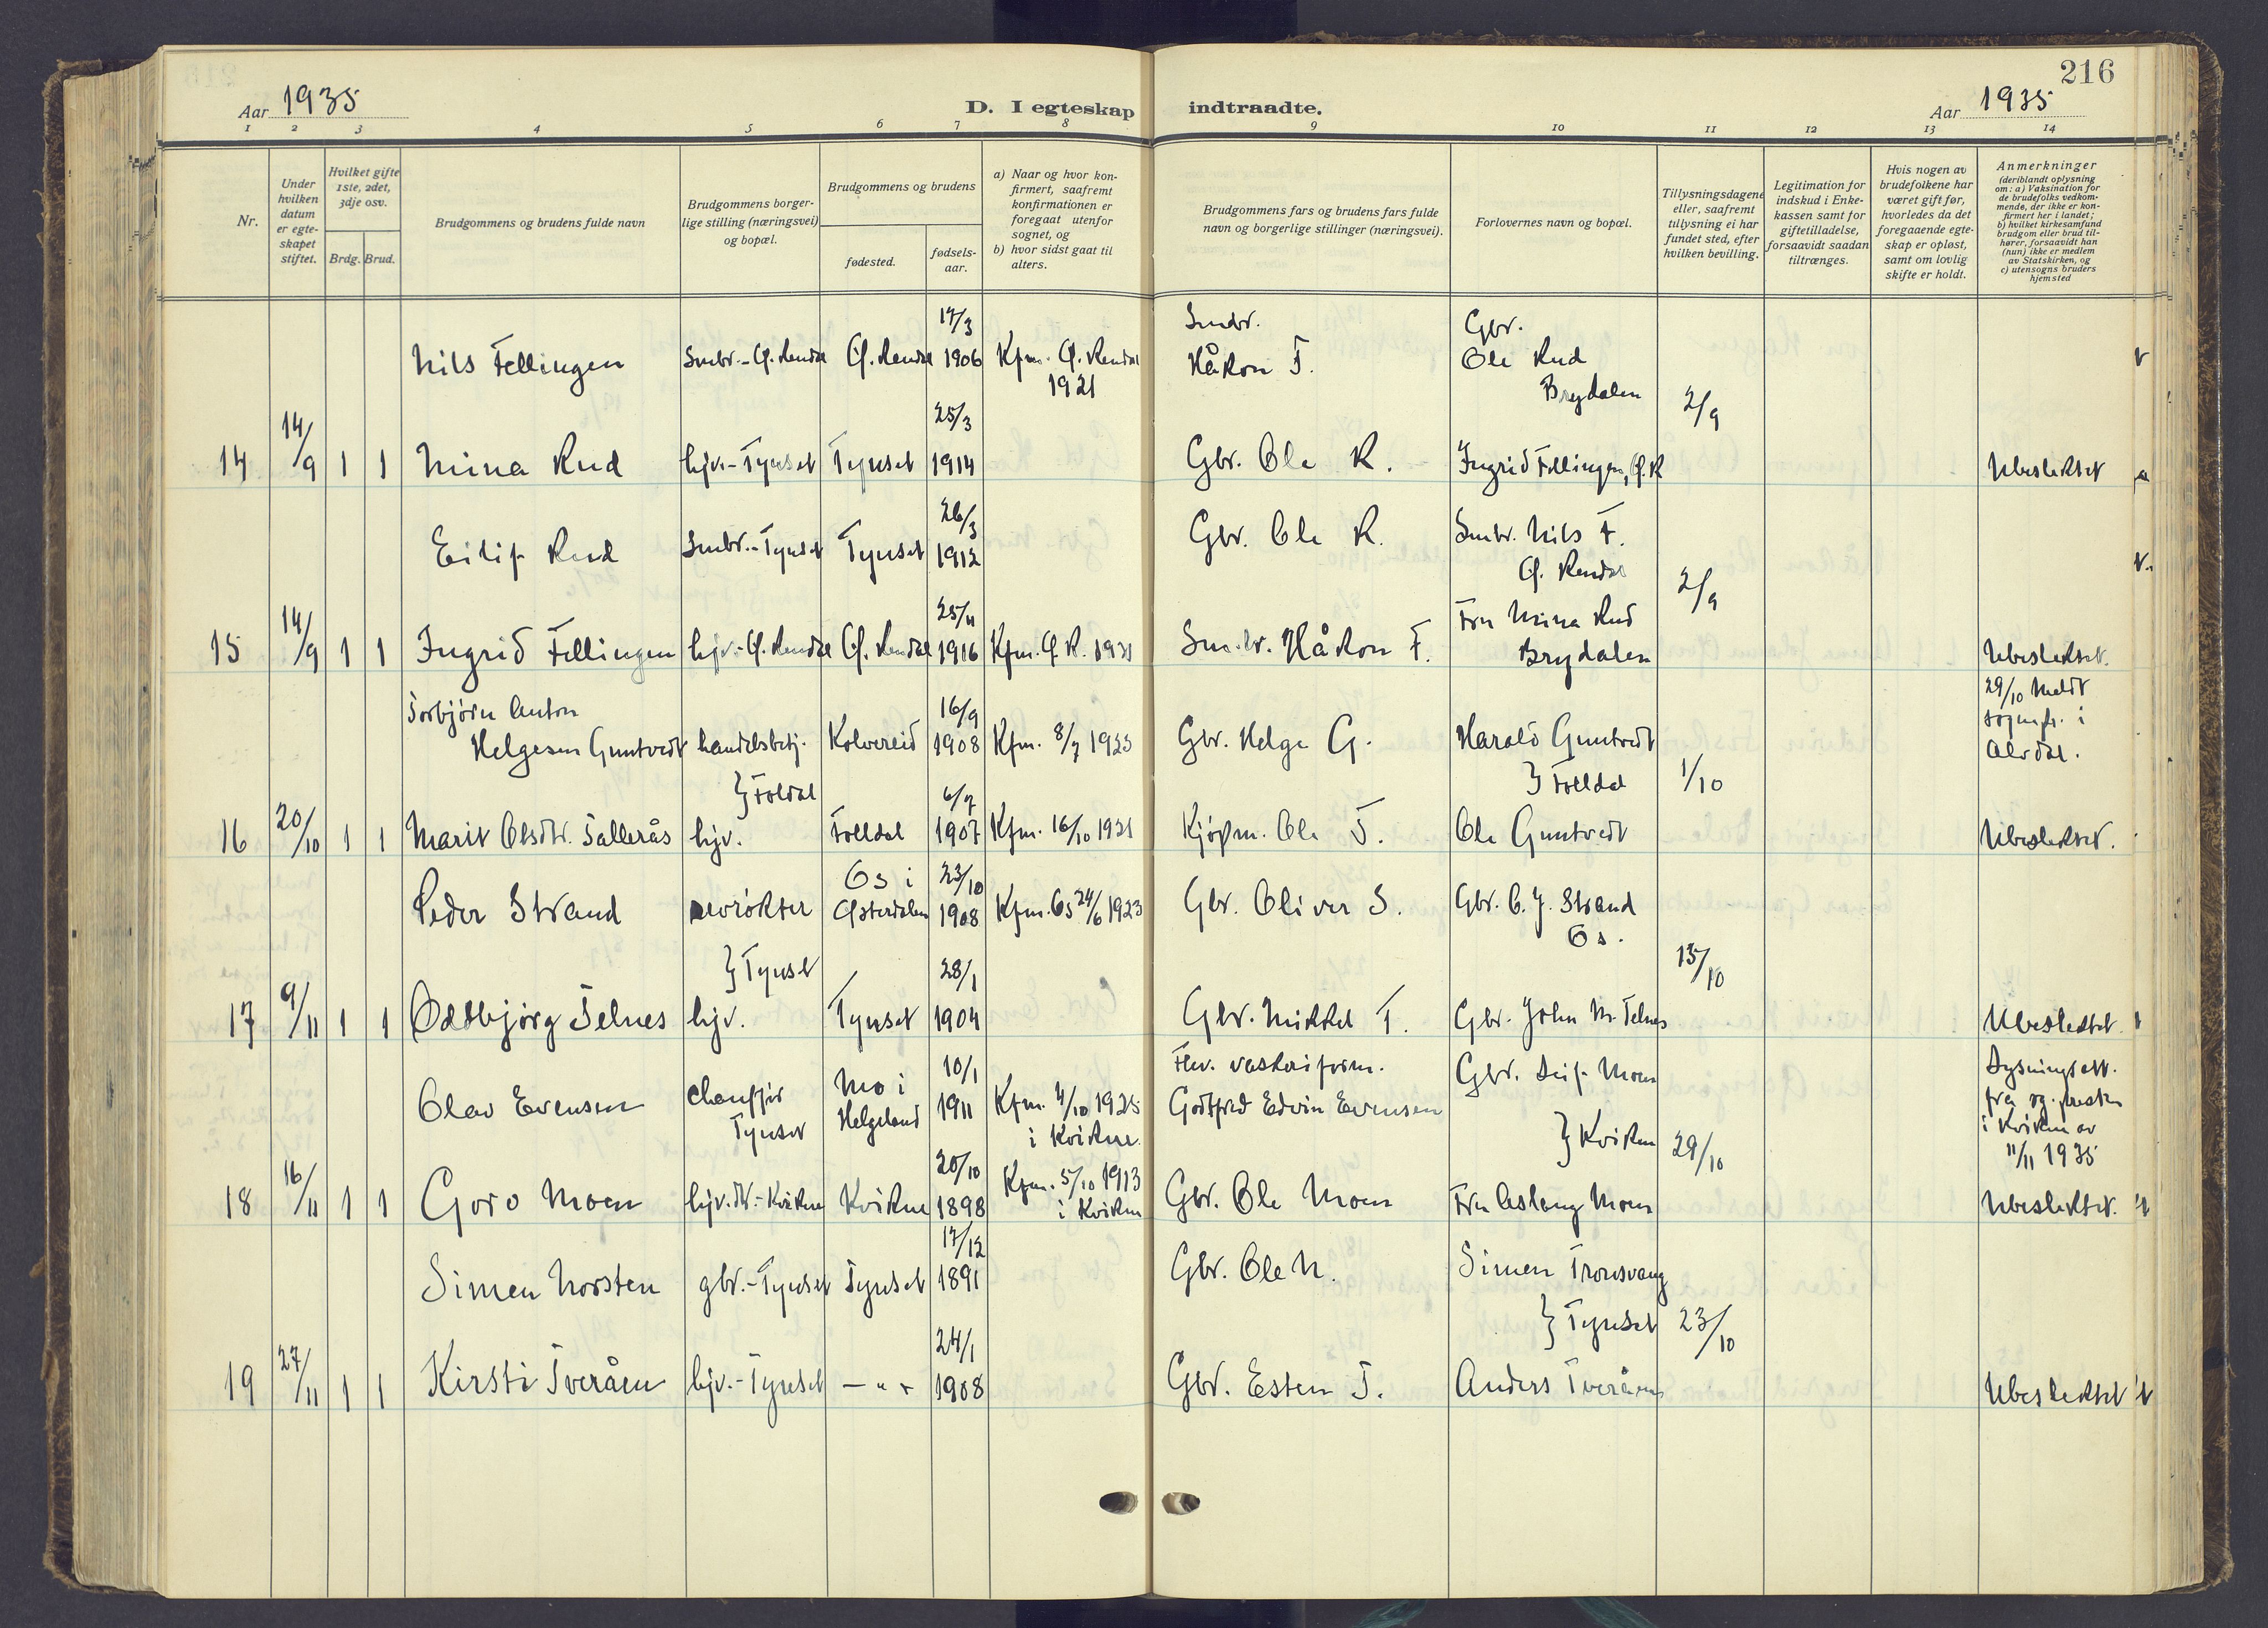 216
Aar 1935
D. I egteskap indtraadte.
Aar 1935
1 2 3 4 5 6 7 8 9 10 11 12 13 14
Nr.
Under hvilken datum er egteskapet stiftet.
Hvilket gifte 1ste, 2det, 3dje osv.
Brdg. Brud.
Brudgommens og brudens fulde navn
Brudgommens borgerlige stilling (næringsvei) og bopæl.
Brudgommens og brudens
fødested.
fødselsaar.
a) Naar og hvor konfirmert, saafremt konfirmationen er foregaat utenfor sognet, og
b) hvor sidst gaat til alters.
Brudgommens fars og brudens fars fulde navn og borgerlige stillinger (næringsvei).
Forlovernes navn og bopæl.
Tillysningsdagene eller, saafremt tillysning ei har fundet sted, efter hvilken bevilling.
Legitimation for indskud i Enkekassen samt for giftetilladelse, forsaavidt saadan tiltrænges.
Hvis nogen av brudefolkene har været gift før, hvorledes da det foregaaende egteskap er opløst, samt om lovlig skifte er holdt.
Anmerkninger
(deriblandt oplysning om: a) Vaksination for de brudefolks vedkommende, der ikke er konfirmert her i landet;
b) hvilket kirkesamfund brudgom eller brud tilhører, forsaavidt han (hun) ikke er medlem av Statskirken, og
c) utensogns bruders hjemsted
17/3
Smbr.
Gbr.
Nils Fellingen Smbr. - Ø. Rendal Ø. Rendal 1906 Kfm. Ø. Rendal Håkon F. Ole Rud
1921
Brydalen
2/9
14/9
25/3
14 1 1 Mina Rud hjv. - Tynset Tynset 1914 Gbr. Ole R. Ingrid Fellingen, Ø. R Ubeslektet
26/3
Eilif Rud Smbr. - Tynset Tynset 1912 Gbr. Ole R. Smbr. Nils F.
Ø. Rendal
2/9
14/9
Fru Mina Rud
15 1 1 Ingrid Fellingen hjv. - Ø. Rendal Ø. Rendal 1916 Kfm. Ø. R. 1931 Smbr. Håkon F. Brydalen Ubeslektet.
Torbjørn Anton
16/9
29/10 meldt
sognepr. i
Alvdal.
Helgesen Guntvedt handelsbetj. Kolvereid 1908 Kfm. 8/7 1923 Gbr. Helge G. Harald Guntvedt
} Foldal
} Folldal
1/10
6/7
16 20/10 1 1 Marit Olsdtr. Tallerås hjv. Folldal 1907 Kfm. 16/10 1921 Kjøpm. Ole T. Ole Guntvedt Ubeslektet.
Os i
23/10
Peder Strand revrøkter Østerdalen 1908 Kfm. Os 24/6 1923 Gbr. Oliver S. Gbr. O. J. Strand
Os.
} Tynset
28/1
15/10
17 9/11 1 1 Oddbjørg Telnes hjv. Tynset 1904 Gbr. Mikkel T. Gbr. John M. Telnes Ubeslektet.
10/1
Fhv. vaskeriform.
Gbr. Leif Moen
Lysningsatt.
fra sg. presten
i Kvikne av
11/11 1935
Olav Evensen chauffør Mo i 1911 Kfm. 4/10 1925 Godtfred Edvin Evensen
Tynset Helgeland
i Kvikne.
} Kvikne
29/10
16/11
20/10
Kfm. 5/10 1913
18 1 1 Goro Moen hjv. dt. - Kvikne Kvikne 1898 i Kvikne Gbr. Ole Moen Fru Aslaug Moen Ubeslektet.
17/12
Simen Norsten gbr. - Tynset Tynset 1891 Gbr. Ole N. Simen Tronsvang
} Tynset
23/10
24/1
19 27/11 1 1 Kirsti Tveråen hjv. - Tynset — " — 1908 Gbr. Esten T. Anders Tveråen Ubeslektet